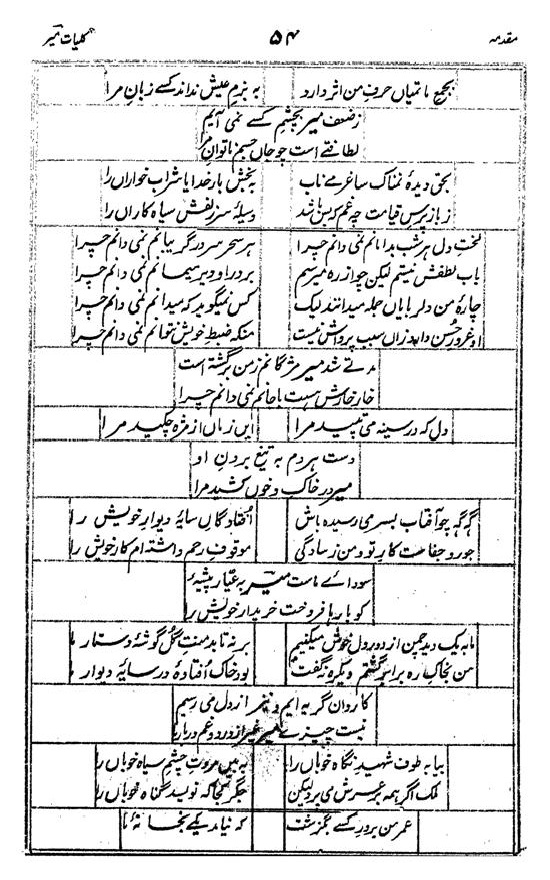 مقدمہ ۵۴ کلیات میر
بجمع ماتمیاں حرفِ من اثر دارد بہ بزمِ عیش نداند کسے زبانِ مرا
ز ضعف میر بچشمِ کسے نمی آیم
لطافتے است چو جاں جسمِ ناتوانِ مرا
بحقِ دیدۂ نمناک ساغرِ مے ناب بہ بخش بارِ خدایا شراب خواراں را
ز باز پرسِ قیامت چہ غم کہ بس باشد وسیلۂ سرِ زلفش سیاہ کاراں را
لختِ دل ہر شب بدامانم نمی دانم چرا ہر سحر سر در گریبانم نمی دانم چرا
بابِ لطفش نیستم لیکن چو از رہ میرسم بر درِ او دیر میمانم نمی دانم چرا
چارۂ من دلربایاں جملہ میدانند لیک کس نمیگوید کہ میدانم نمی دانم چرا
او غرورِ حُسن دارد زاں سبب پرواش نیست منکہ ضبطِ خویش نتوانم نمی دانم چرا
مدتے شد میر مژگانم ز من برگشتہ است
خار خارش ہست با جانم نمی دانم چرا
دل کہ در سینہ می تپید مرا ایں زماں از مژہ چکید مرا
دست بردم بہ تیغ بردنِ او
میر در خاک و خوں کشید مرا
گہ گہ چو آفتاب بسر می رسیدہ باش اُفتادگانِ سایۂ دیوارِ خویش را
جور و جفاست کارِ تو و من ز سادگی موقوفِ رحم داشتہ ام کارِ خویش را
سودائے ماست میر بہ عیار پیشۂ
کو بارہا فروخت خریدارِ خویش را
ما بہ یک دیدِ چمن از دور دل خوش میکنیم بر نہ تابد منتِ گُل گوشۂ دستارِ ما
من بخاکِ رہ برابر گشتم و یکرہ نگفت بود خاک اُفتادۂ در سایۂ دیوارِ ما
کاروانِ گریہ ایم و از دل می رسیم
نیست چیزے میر غیر از درد و غم دربارِ ما
بیا بہ طوفِ شہیدِ نگاہِ خوباں را بہ بیں مروتِ چشمِ سیاہِ خوباں را
ملک اگر ہمہ بر عرش می برد لیکن جگر کجا کہ نویسد گناہِ خوباں را
عمرِ من بر درِ کسے بگزشت کہ نیاید یکے بخانۂ ما